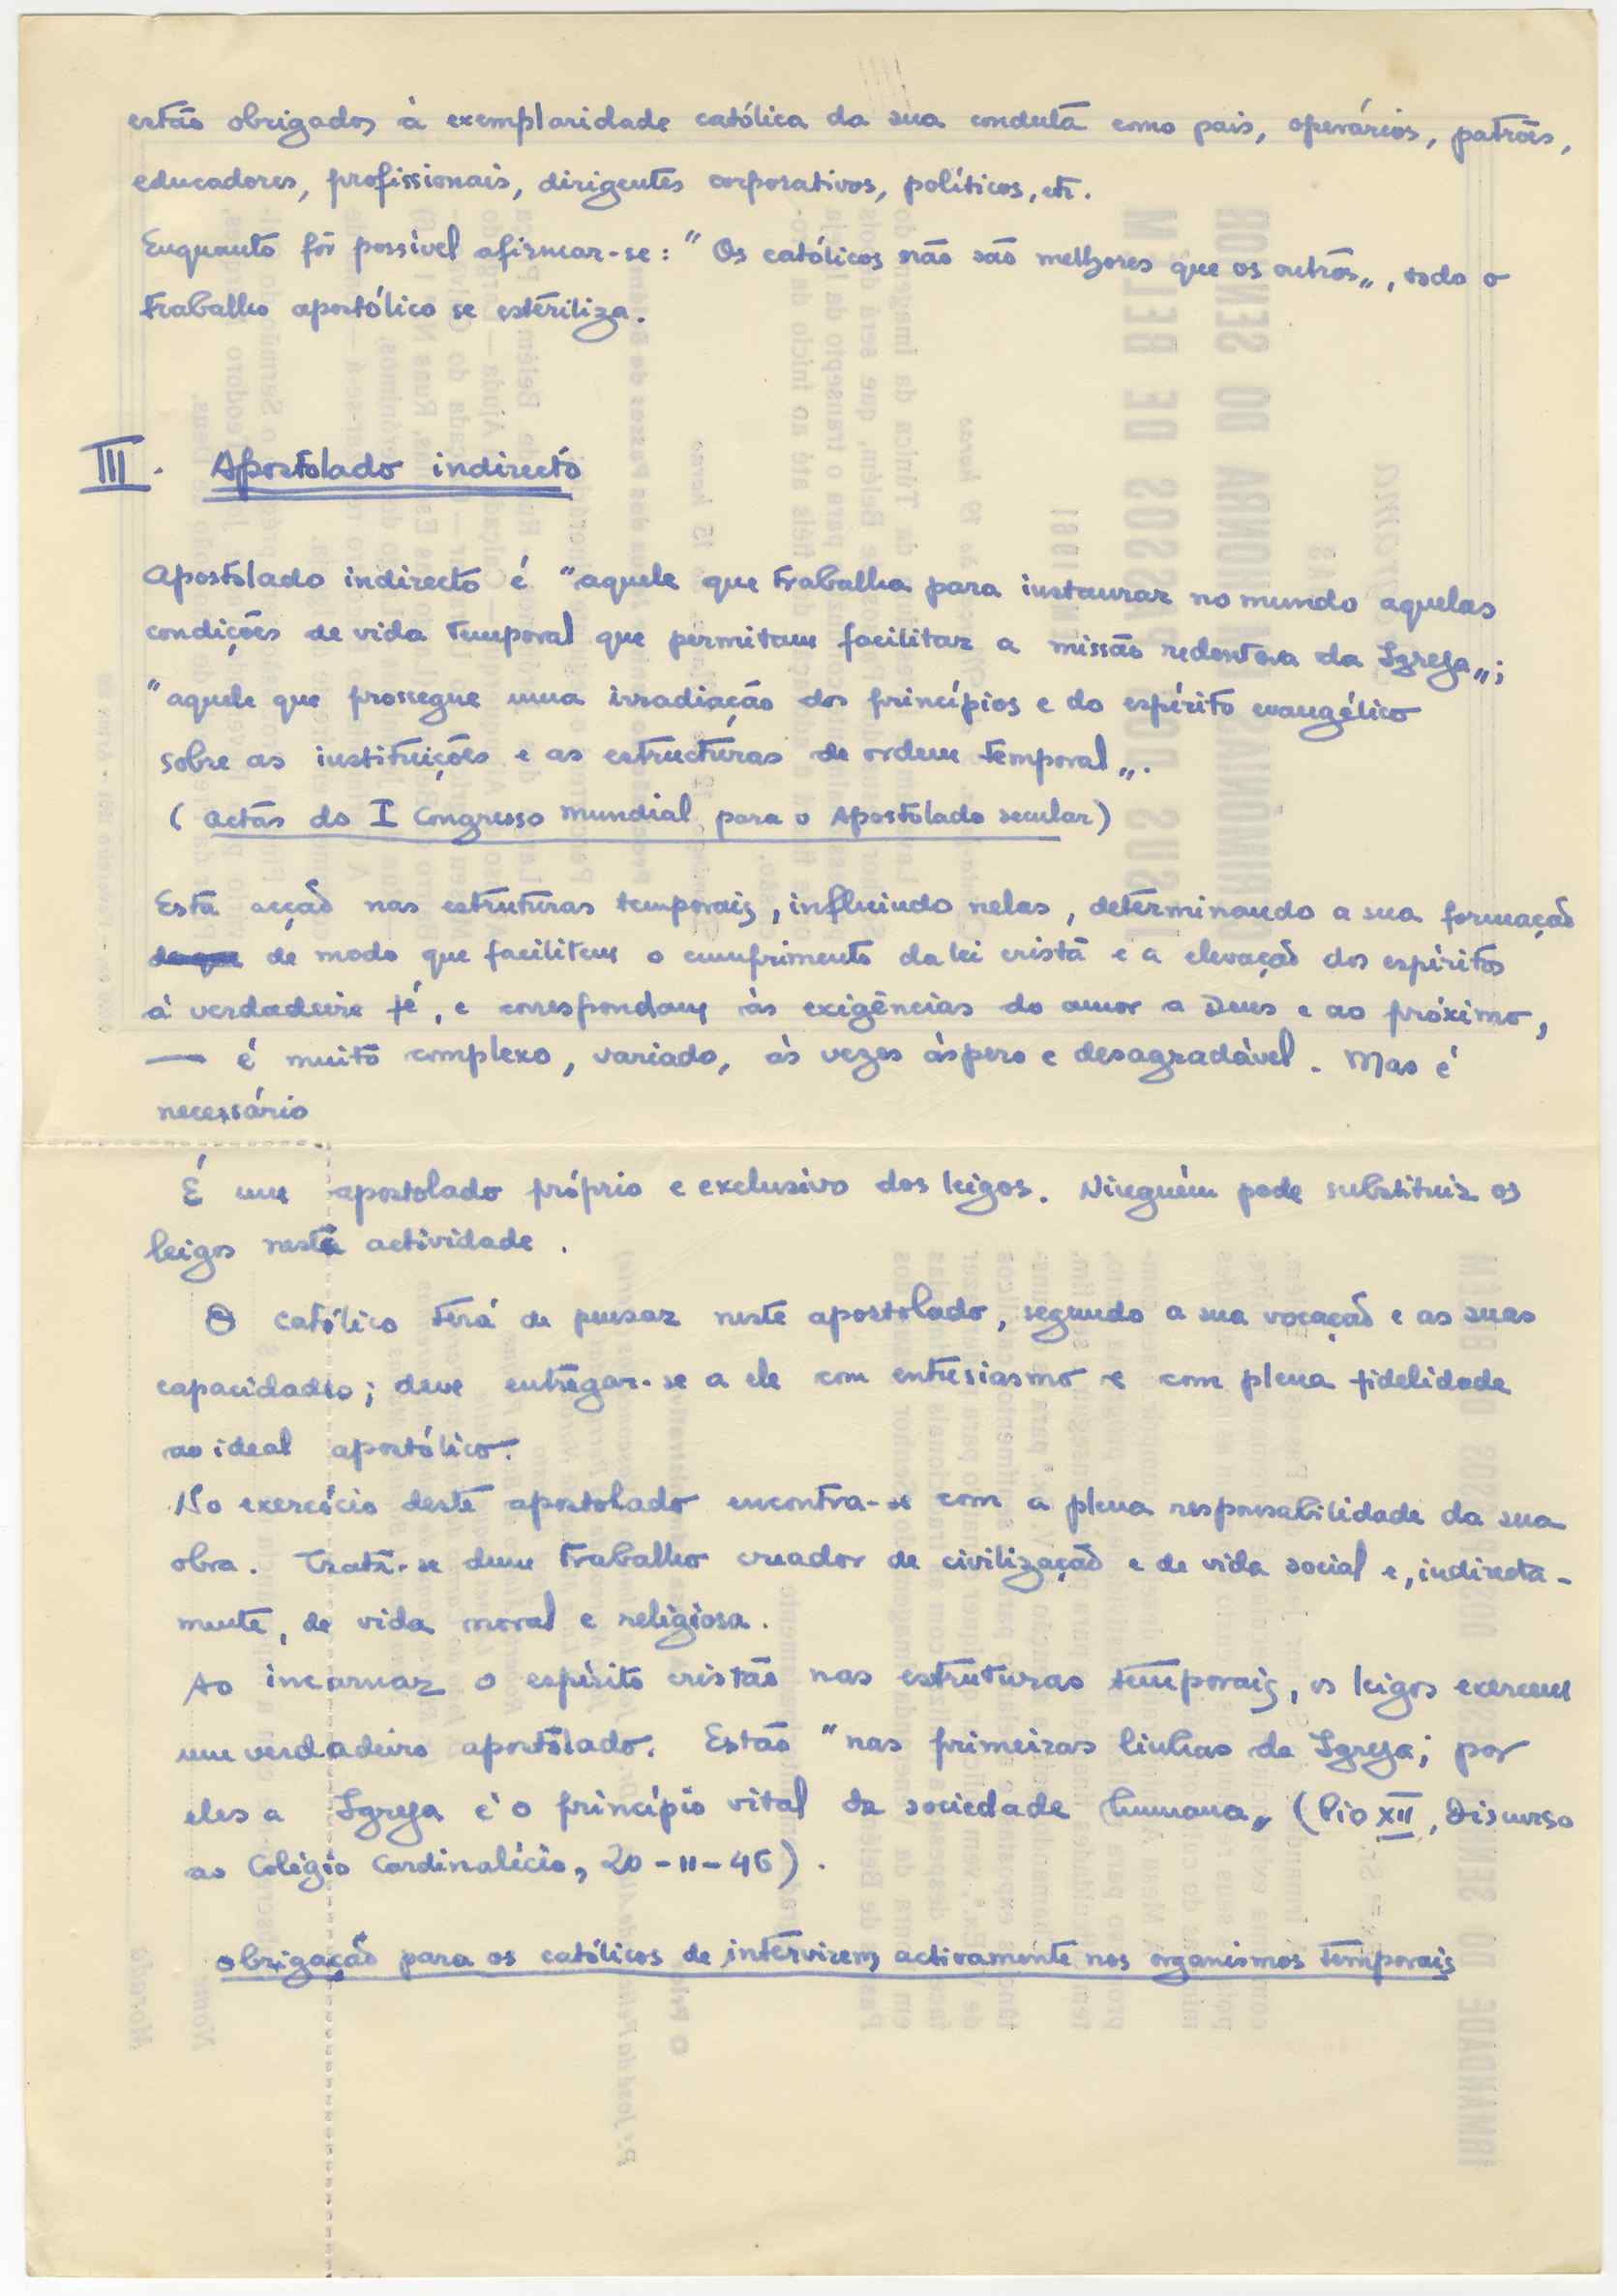 estão obrigados à exemplaridade católica da sua conduta como pais, operários, patrões,
educadores, profissionais, dirigentes corporativos, políticos, etc.
Enquanto fôr possível afirmar-se: "Os católicos não são melhores que os outros„, todo o
trabalho apostólico se esteriliza.
III. Apostolado indirecto
Apostolado indirecto é "aquele que trabalha para instaurar no mundo aquelas
condições de vida temporal que permitam facilitar a missão redentora da Igreja„;
"aquele que prossegue uma irradiação dos princípios e do espírito evangélico
sobre as instituições e as estructuras de ordem temporal„.
(Actas do I Congresso Mundial para o Apostolado secular)
Esta acção nas estruturas temporais, influindo nelas, determinando a sua formação
de que de modo que facilitem o cumprimento da lei cristã e a elevação dos espíritos
à verdadeira fé, e correspondam às exigências do amor a Deus e ao próximo,
— é muito complexo, variado, às vezes áspero e desagradável. Mas é
necessário
É um apostolado próprio e exclusivo dos leigos. Ninguém pode substituir os
leigos nesta actividade.
O católico terá de pensar neste apostolado, segundo a sua vocação e as suas
capacidades; deve entregar-se a ele com entusiasmo e com plena fidelidade
ao ideal apostólico.
No exercício deste apostolado encontra-se com a plena responsabilidade da sua
obra. Trata-se dum trabalho creador de civilização e de vida social e, indirecta-
mente, de vida moral e religiosa.
Ao incarnar o espírito cristão nas estruturas temporais, os leigos exercem
um verdadeiro apostolado. Estão "nas primeiras linhas da Igreja; por
eles a Igreja é o princípio vital da sociedade humana„ (Pio XII, Discurso
ao Colégio Cardinalício, 20-II-46).
Obrigação para os católicos de intervirem activamente nos organismos temporais